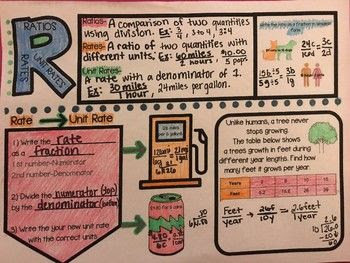 RATIOS
R
RATES
UNIT RATES
Ratios- A comparison of two quantities
using division. Ex: 3/4, 3 to 4, 3:4
Rates- A ratio of two quantities with
different units. Ex: 60 miles / 2 hours, $10.00 / 5 pops
Unit Rates-
A rate with a denominator of 1.
Ex: 30 miles / 1 hour, 24 miles per gallon.
Write the ratio as a fraction in simplest
form.
24c / 16d = 3c / 2d
15b ÷5 / 5g ÷5 3b / 1g
Rate → Unit Rate
1) Write the rate
as a fraction
1st number-Numerator
2nd number-Denominator
2) Divide the numerator (top)
by the denominator (bottom)
3) Write your new unit rate
with the correct units
miles
per gallon
6 C
Unlike humans, a tree never
stops growing.
The table below shows
a trees growth in feet during
different year lengths. Find how
many feet it grows per year.
Years 2 5 10
Feet 5.2 26
Feet / year → 26f / 10y = 2.6 feet / 1 year
2.6
10 26.0
-20
60